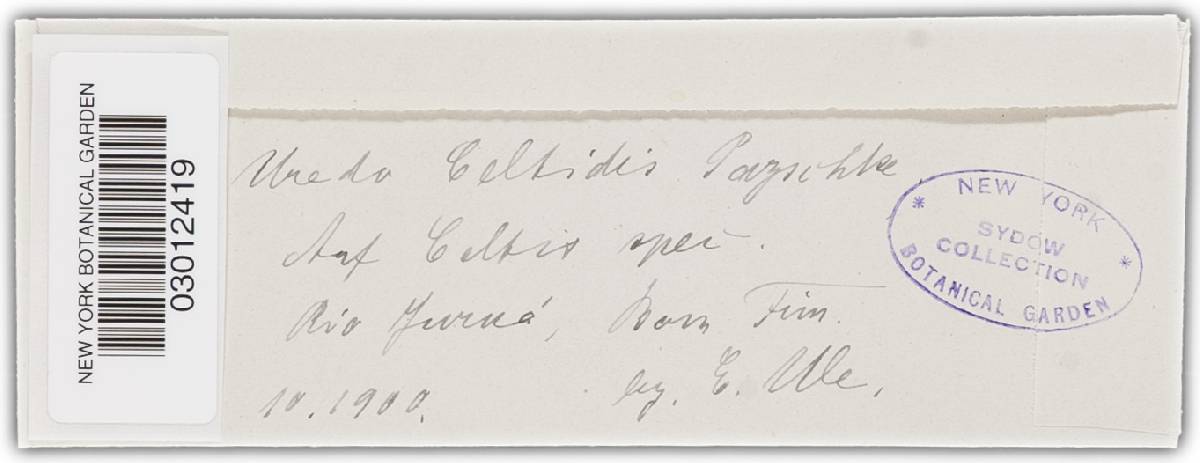 NEW YORK BOTANICAL GARDEN
03012419
Uredo Celtidis Pazschke.
Auf Celtis spec.
Rio Juruá, Bom Fim.
10.1900. leg. E. Ule.
* NEW YORK *
SYDOW
COLLECTION
BOTANICAL GARDEN